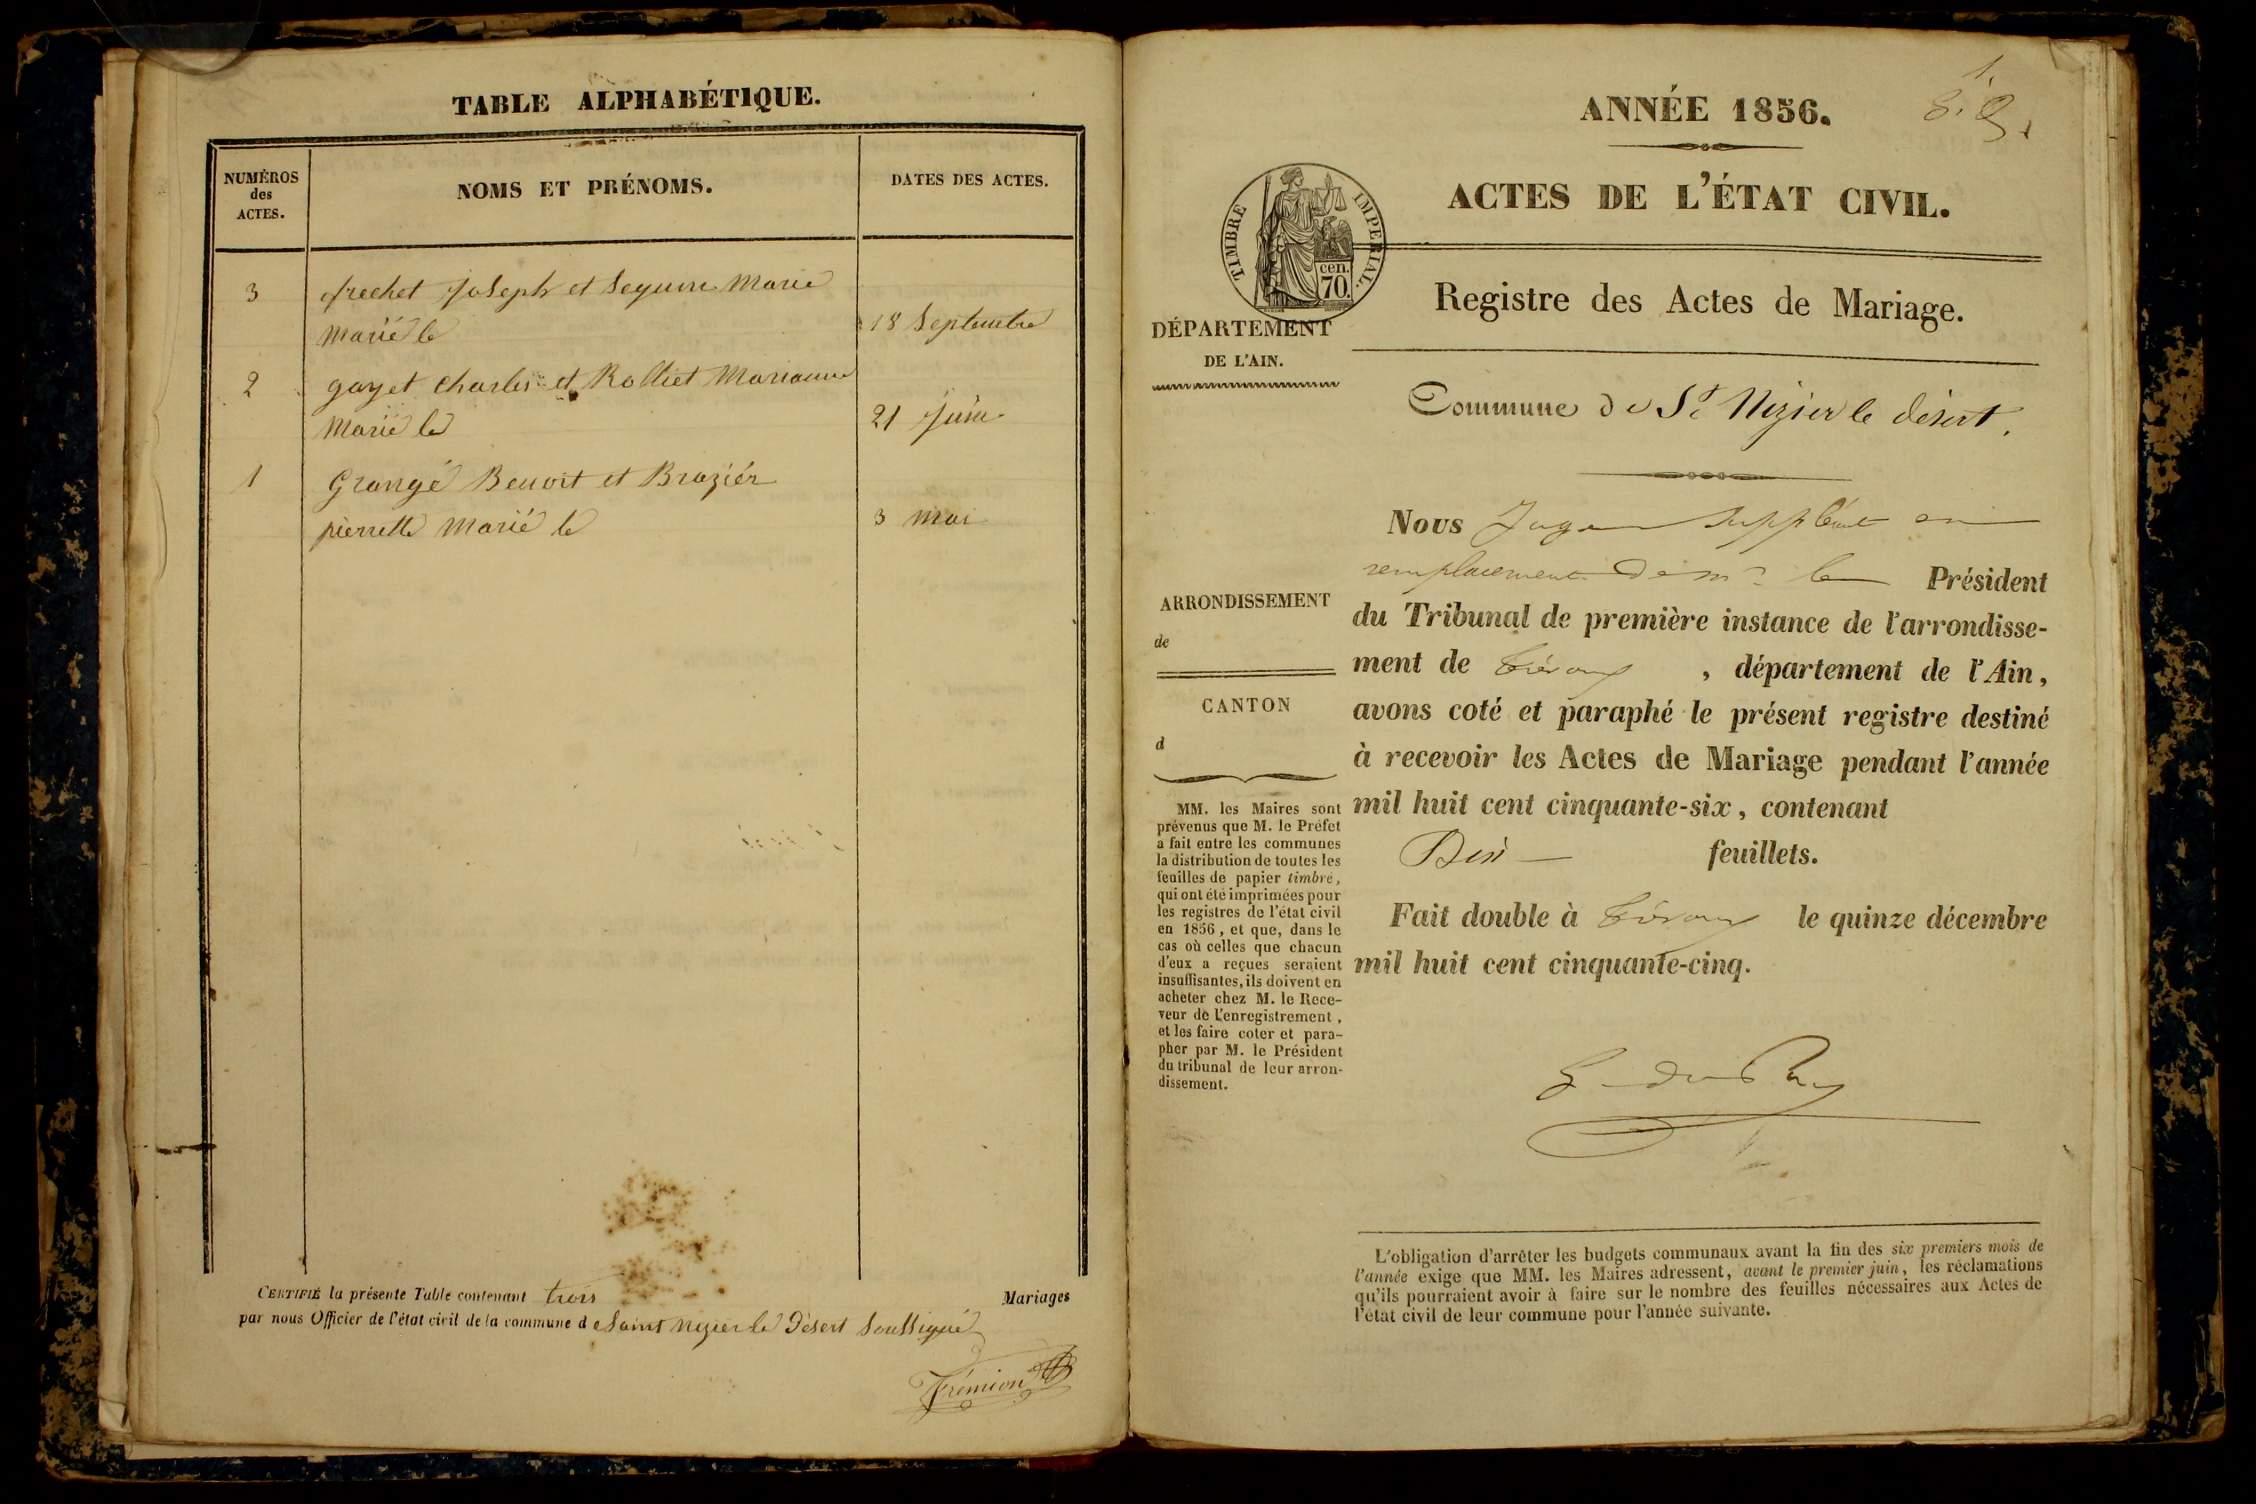 TABLE ALPHABÉTIQUE.
NUMÉROS
des
ACTES.
NOMS ET PRÉNOMS.
DATES DES ACTES.
3 frechet Joseph et Seguin Marie
Marié le 18 Septembre
2 gayet Charles et Rolliet Marianne
Marié le 21 Juin
1 Grangé Benoit et Braziér
pierrette Marié le 3 mai
CERTIFIÉ la présente Table contenant trois Mariages
par nous Officier de l'état civil de la commune de Saint Nizier le Désert Soussigné
Frémion
1.
ANNÉE 1856.
ACTES DE L'ÉTAT CIVIL.
TIMBRE IMPERIAL.
cen.
70.
DÉPARTEMENT
DE L'AIN.
Registre des Actes de Mariage.
Commune de St Nizier le désert.
ARRONDISSEMENT
de
CANTON
d
MM. les Maires sont
prévenus que M. le Préfet
a fait entre les communes
la distribution de toutes les
feuilles de papier timbré,
qui ont été imprimées pour
les registres de l'état civil
en 1856, et que, dans le
cas où celles que chacun
d'eux a reçues seraient
insuffisantes, ils doivent en
acheter chez M. le Rece-
veur de l'enregistrement,
et les faire coter et para-
pher par M. le Président
du tribunal de leur arron-
dissement.
Nous Juge Suppléant en
remplacement de Mr le Président
du Tribunal de première instance de l'arrondisse-
ment de Trévoux, département de l'Ain,
avons coté et paraphé le présent registre destiné
à recevoir les Actes de Mariage pendant l'année
mil huit cent cinquante-six, contenant
Dix feuillets.
Fait double à Trévoux le quinze décembre
mil huit cent cinquante-cinq.
L'obligation d'arrêter les budgets communaux avant la fin des six premiers mois de
l'année exige que MM. les Maires adressent, avant le premier juin, les réclamations
qu'ils pourraient avoir à faire sur le nombre des feuilles nécessaires aux Actes de
l'état civil de leur commune pour l'année suivante.